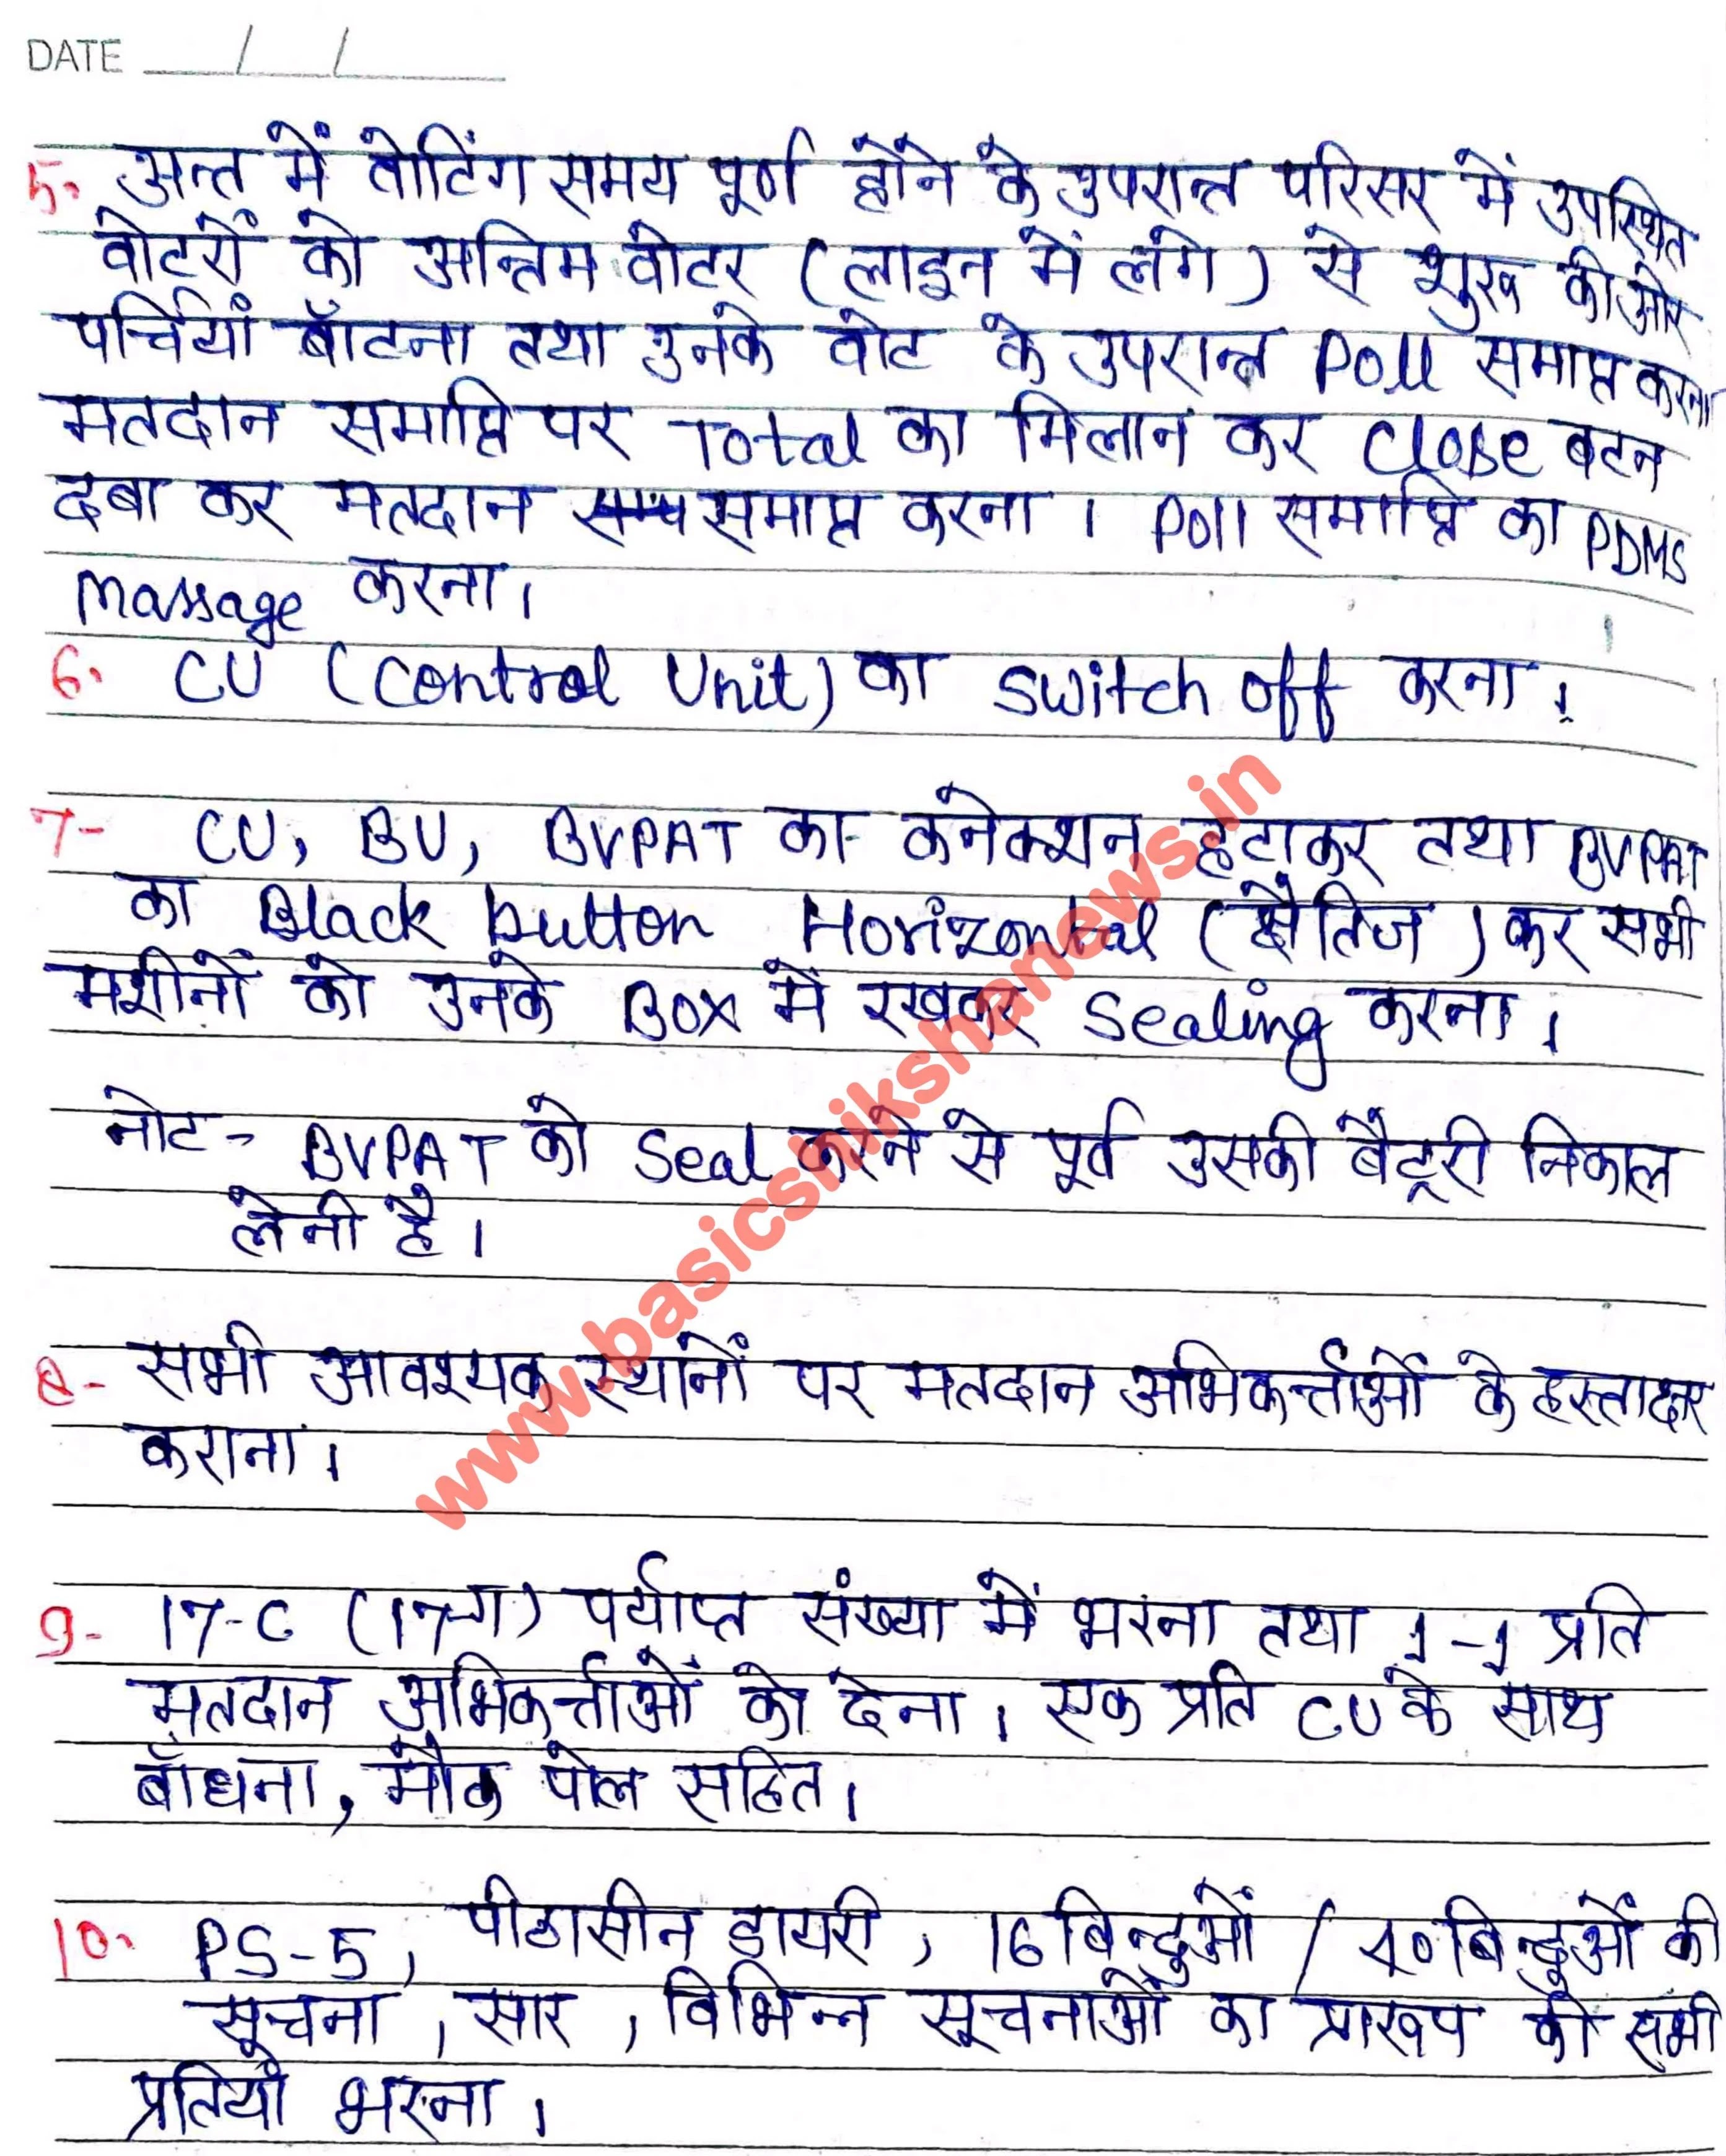 DATE __/__/__
5. अन्त में वोटिंग समय पूर्ण होने के उपरान्त परिसर में उपस्थित
वोटरों को अन्तिम वोटर (लाइन में लगे) से शुरू की ओर
पर्चियां बाँटना तथा उनके वोट के उपरान्त Poll समाप्त करना
मतदान समाप्ति पर Total का मिलान कर Close बटन
दबा कर मतदान समाप्त करना । Poll समाप्ति का PDMS
Massage करना ।
6. CU (Control Unit) का Switch off करना ।
7- CU, BU, BVPAT का कनेक्शन हटाकर तथा BVPAT
का Black button Horizontal (क्षैतिज) कर सभी
मशीनों को उनके Box में रखकर Sealing करना ।
नोट - BVPAT को Seal करने से पूर्व उसकी बैट्ररी निकाल
लेनी है ।
8- सभी आवश्यक स्थानों पर मतदान अभिकर्त्ताओं के हस्ताक्षर
कराना ।
9- 17-C (17-ग) पर्याप्त संख्या में भरना तथा 1-1 प्रति
मतदान अभिकर्त्ताओं को देना । एक प्रति CU के साथ
बाँधना, मौक पोल सहित ।
10. PS-5, पीठासीन डायरी, 16 बिन्दुओं / 40 बिन्दुओं की
सूचना, सार, विभिन्न सूचनाओं का प्रारूप की सभी
प्रतियाँ भरना ।
www.basicshikshanews.in